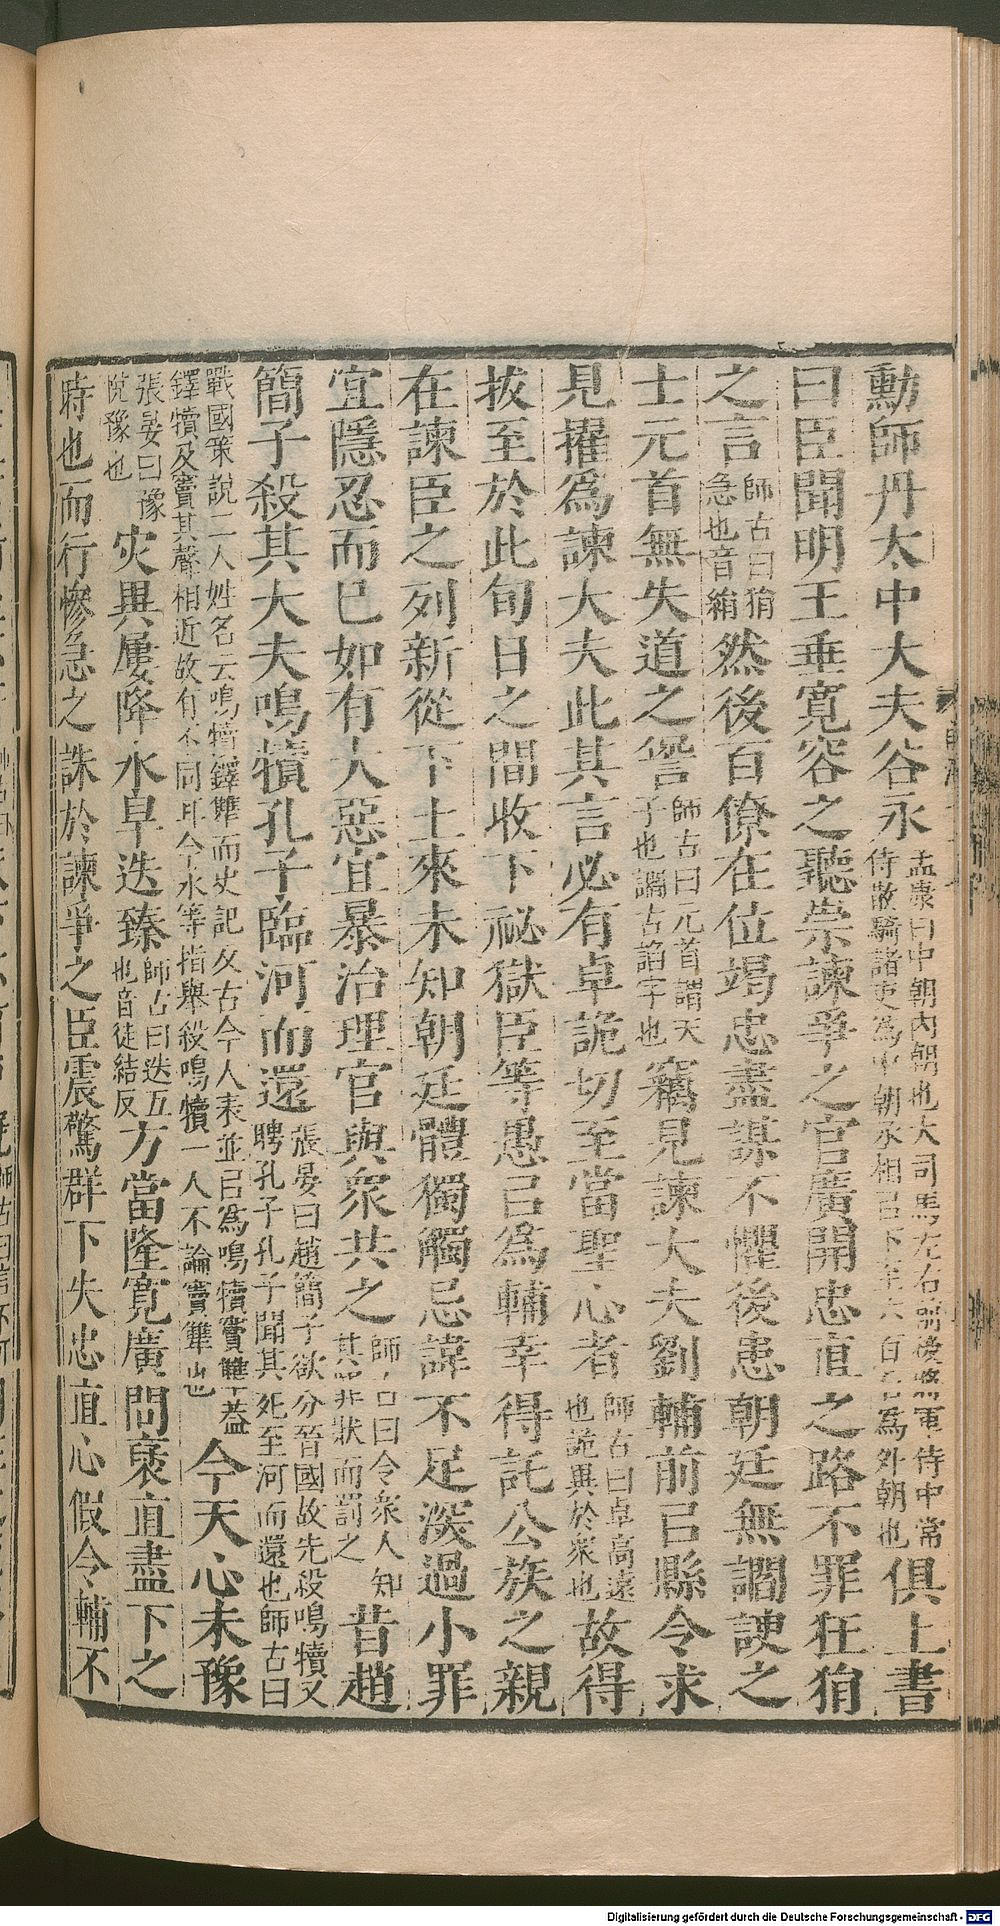 勳師丹太中大夫谷永孟康曰中朝內朝也大司馬左右前後將軍侍中常侍散騎諸吏為中朝丞相已下至六百石為外朝也俱上書
曰臣聞明王垂寬容之聽崇諫爭之官廣開忠直之路不罪狂狷
之言師古曰狷急也音絹然後百僚在位竭忠盡謀不懼後患朝廷無讇諛之
士元首無失道之諐師古曰元首謂天子也讇古諂字也竊見諫大夫劉輔前已縣令求
見擢為諫大夫此其言必有卓詭切至當聖心者師古曰卓高遠也詭異於衆也故得
拔至於此旬日之間收下祕獄臣等愚已為輔幸得託公族之親
在諫臣之列新從下土來未知朝廷體獨觸忌諱不足深過小罪
宜隱忍而已如有大惡宜暴治理官與衆共之師古曰令衆人知其罪狀而罰之昔趙
簡子殺其大夫鳴犢孔子臨河而還張晏曰趙簡子欲分晉國故先殺鳴犢又聘孔子孔子聞其死至河而還也師古曰
戰國策說二人姓名云鳴犢鐸犨而史記及古今人表並已為鳴犢竇犨蓋鐸犢及竇其聲相近故有不同耳今永等指舉殺鳴犢一人不論竇犨也今天心未豫
張晏曰豫悅豫也災異屢降水旱迭臻師古曰迭互也音徒結反方當隆寬廣問襃直盡下之
時也而行慘急之誅於諫爭之臣震驚群下失忠直心假令輔不
Digitalisierung gefördert durch die Deutsche Forschungsgemeinschaft - DFG